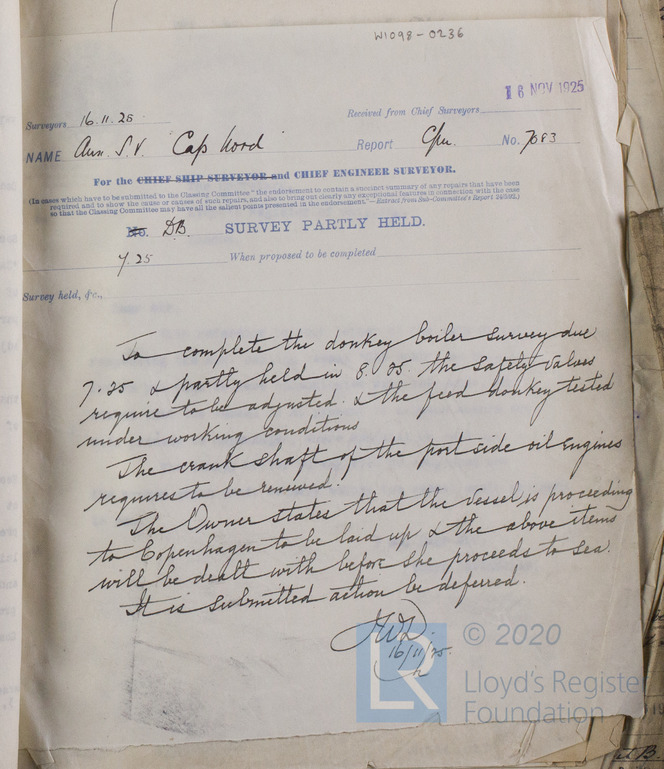 W1098-0236
16 NOV 1925
Surveyors 16.11.25 Received from Chief Surveyors
NAME Aux. S.V. "Cap Nord" Report Cpn. No. 7083
For the CHIEF SHIP SURVEYOR and CHIEF ENGINEER SURVEYOR.
(In cases which have to be submitted to the Classing Committee "the endorsement to contain a succinct summary of any repairs that have been
required and to show the cause or causes of such repairs, and also to bring out clearly any exceptional features in connection with the case
so that the Classing Committee may have all the salient points presented in the endorsement."—Extract from Sub-Committee's Report
No. DB SURVEY PARTLY HELD.
7.25 When proposed to be completed
Survey held, &c.,
To complete the donkey boiler survey due
7.25 & partly held in 8.25. the safety valves
require to be adjusted & the feed donkey tested
under working conditions
The crank shaft of the port side oil engines
requires to be renewed.
The Owner states that the vessel is proceeding
to Copenhagen to be laid up & the above items
will be dealt with before she proceeds to sea.
It is submitted action be deferred.
16/11/25.
LR
© 2020
Lloyd's Register
Foundation